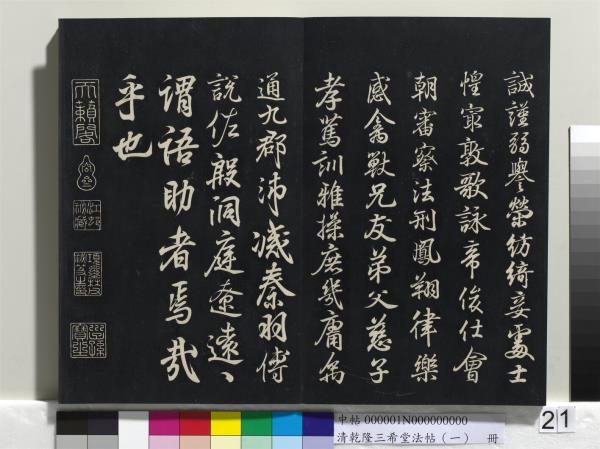 誠謹弱譽榮紡綺妾處士
惶寂敦歌詠帝俊仕會
朝審察法刑鳳翔律樂
感禽獸兄友弟父慈子
孝篤訓雅操庶幾庸為
通九郡沛滅秦羽傅
說佐殷洞庭遼遠
謂語助者焉哉
乎也
天籟閣
中帖 000001N000000000
清乾隆三希堂法帖（一） 冊
21